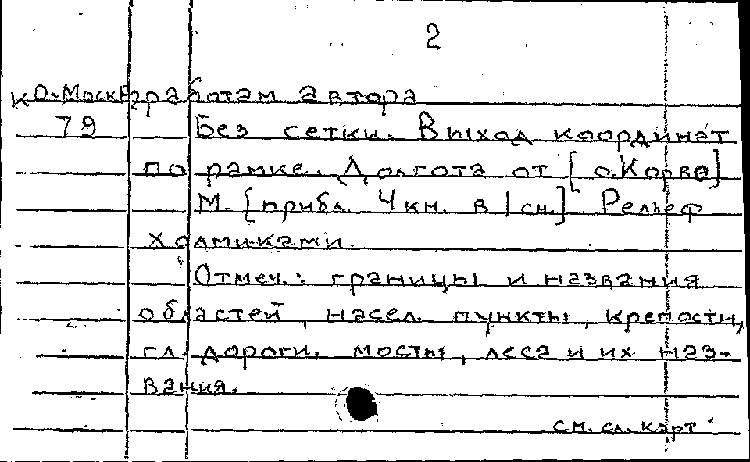 2
КО-Москва работам автора
79 Без сетки. Выход координат
по рамке. Долгота от [о. Корво]
М. [прибл. 4 км. в 1 см.] Рельеф
холмиками.
Отмеч.: границы и названия
областей, насел. пункты, крепости,
гл. дороги. мосты, леса и их наз-
вания.
см. сл. карт